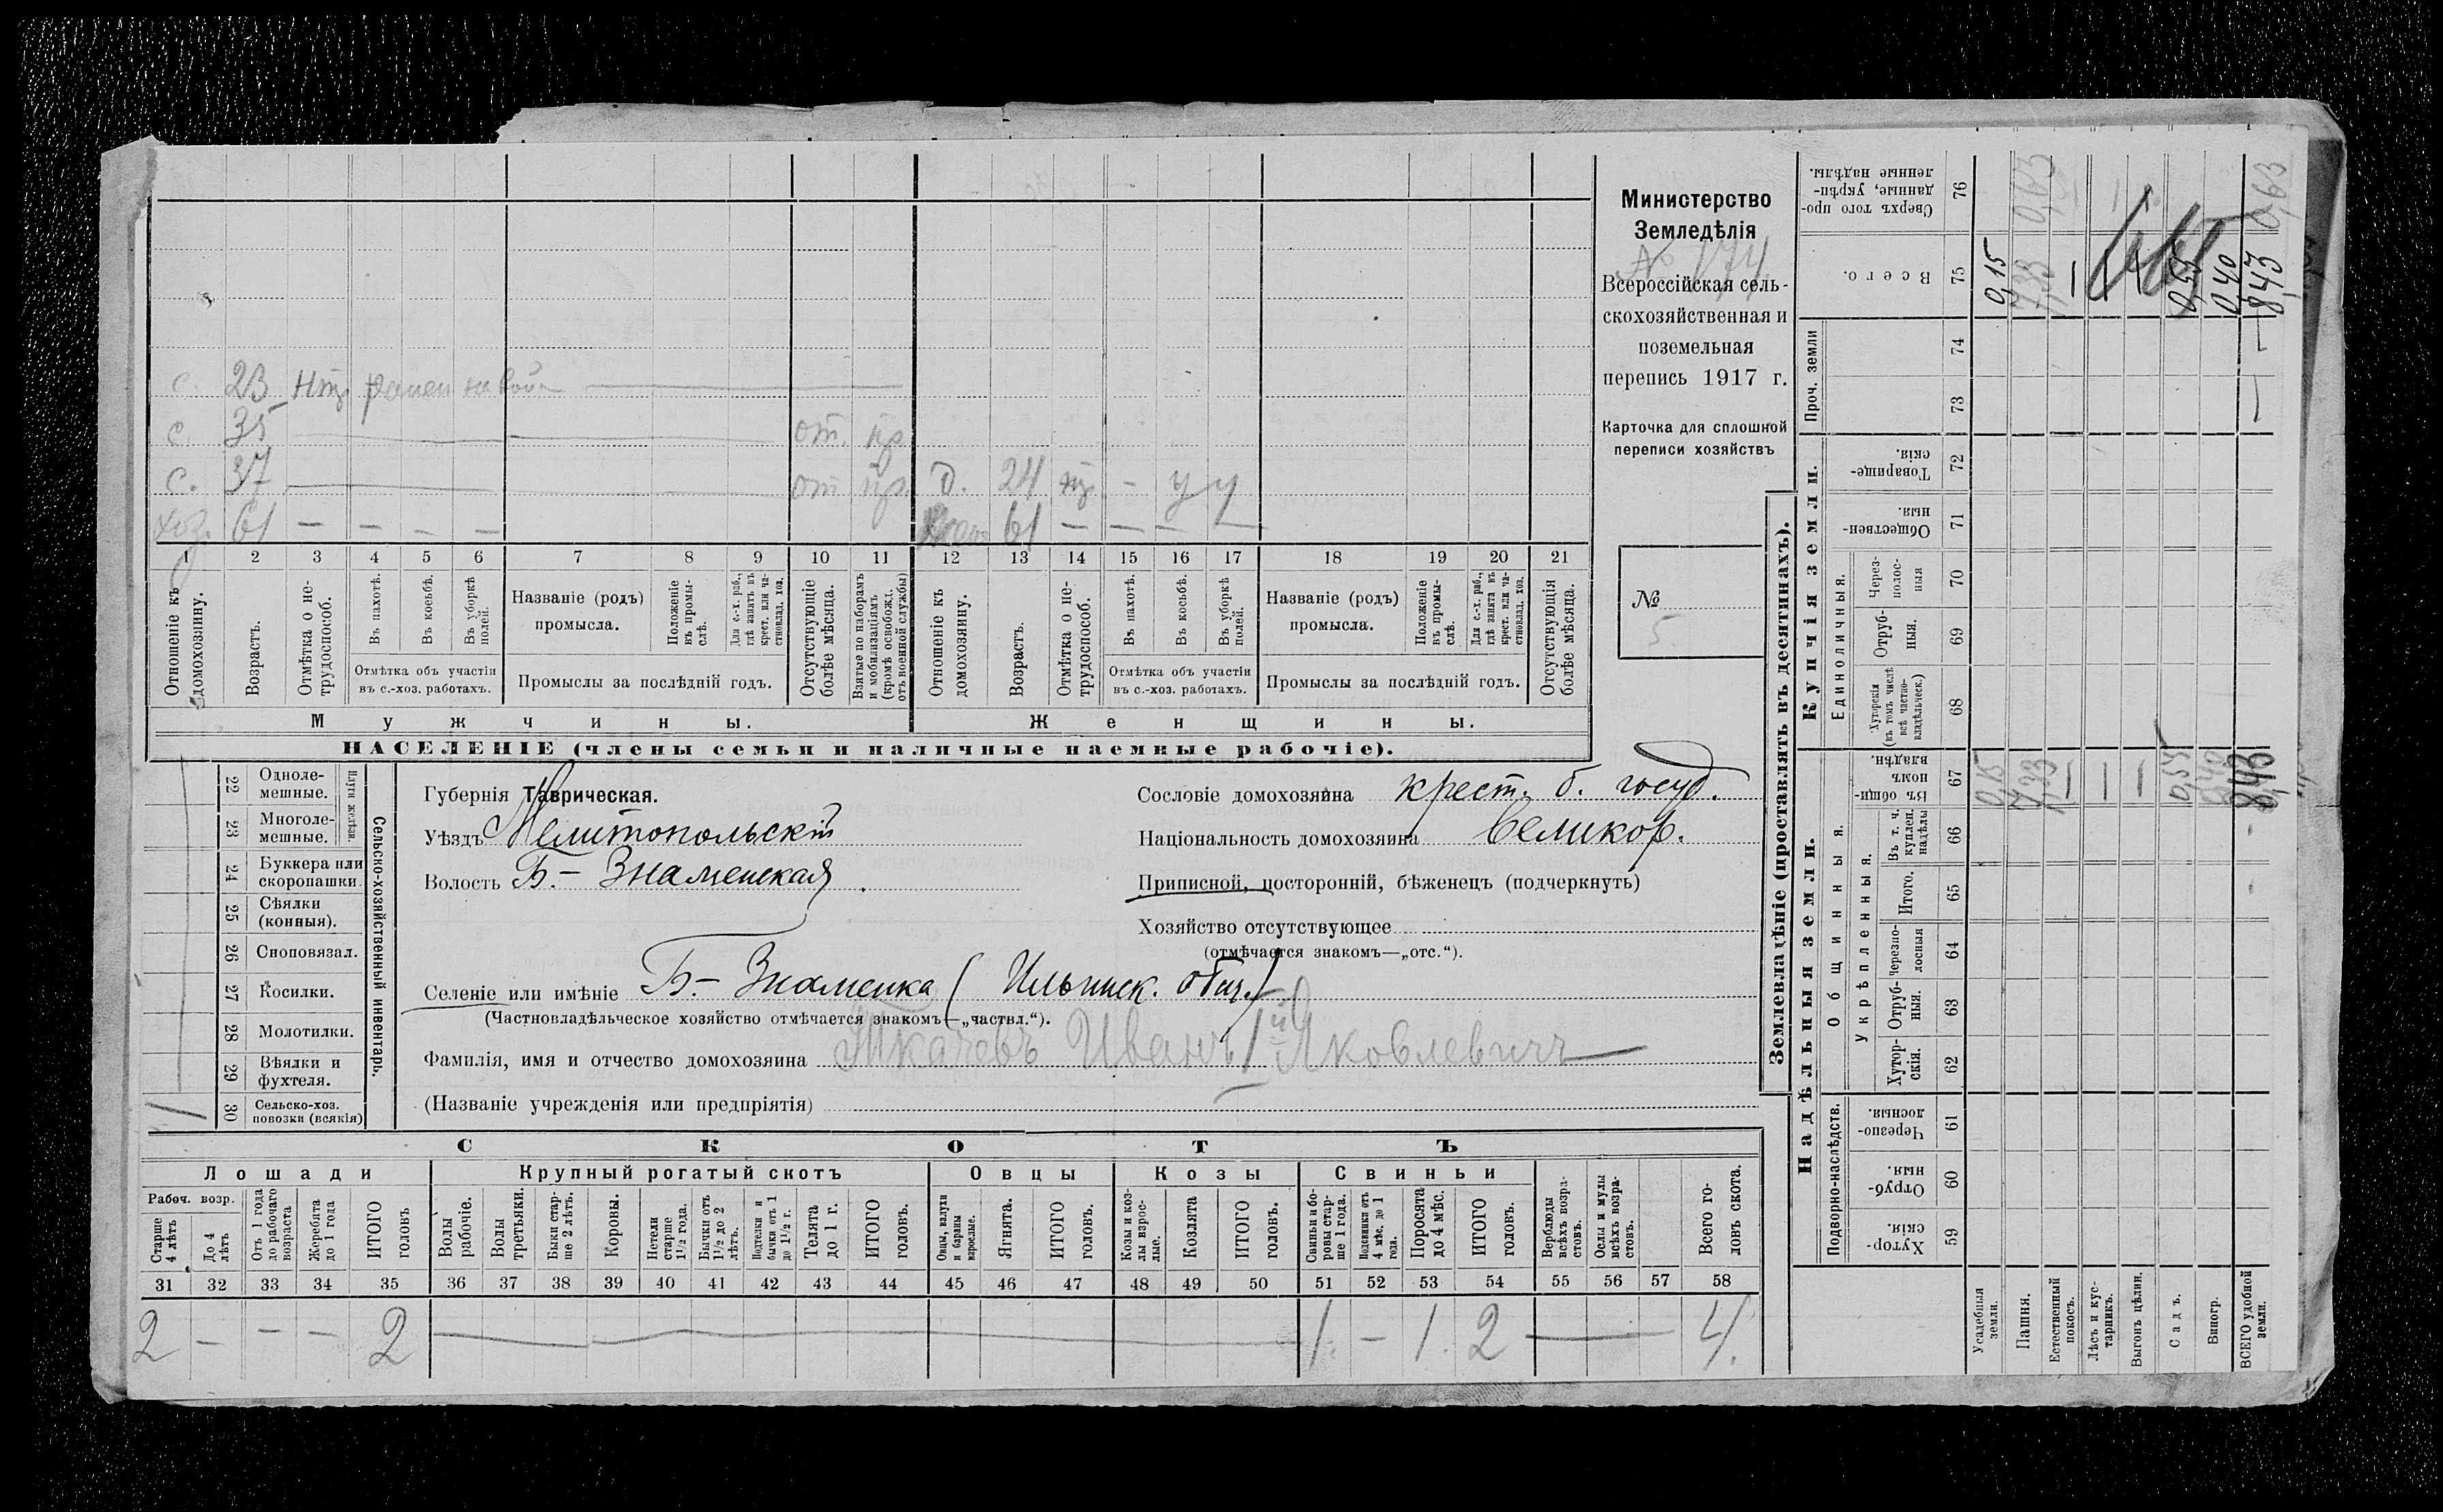 Министерство
Земледѣлія
№ 174
Всероссійская сель-
скохозяйственная и
поземельная
перепись 1917 г.
Карточка для сплошной
переписи хозяйствъ
№
5.
с. 23 нтр ранен на войн
с. 35 — от. пр.
с. 37 — от пр. д. 24 — у у
хоз. 61 — — — — 61 — — — —
1 2 3 4 5 6 7 8 9 10 11 12 13 14 15 16 17 18 19 20 21
Отношеніе къ домохозяину.
Возрастъ.
Отмѣтка о не-трудоспособ.
Въ пахотѣ.
Въ косьбѣ.
Въ уборкѣ полей.
Отмѣтка объ участіи въ с.-хоз. работахъ.
Названіе (родъ) промысла.
Положеніе въ промы-слѣ.
Для с.-х. раб., гдѣ занятъ въ крест. или ча-стновлад. хоз.
Промыслы за послѣдній годъ.
Отсутствующіе болѣе мѣсяца.
Взятые по наборамъ и мобилизаціямъ (кромѣ освобожд. отъ военной службы)
Отношеніе къ домохозяину.
Возрастъ.
Отмѣтка о не-трудоспособ.
Въ пахотѣ.
Въ косьбѣ.
Въ уборкѣ полей.
Отмѣтка объ участіи въ с.-хоз. работахъ.
Названіе (родъ) промысла.
Положеніе въ промы-слѣ.
Для с.-х. раб., гдѣ занята въ крест. или ча-стновлад. хоз.
Промыслы за послѣдній годъ.
Отсутствующія болѣе мѣсяца.
Мужчины. Женщины.
НАСЕЛЕНІЕ (члены семьи и наличные наемные рабочіе).
Сельско-хозяйственный инвентарь.
Плуги желѣзн.
22 Одноле-мешные.
23 Многоле-мешные.
24 Буккера или скоропашки.
25 Сѣялки (конныя).
26 Сноповязал.
27 Косилки.
28 Молотилки.
29 Вѣялки и фухтеля.
30 Сельско-хоз. повозки (всякія) 1
Губернія Таврическая.
Уѣздъ Мелитопольскій
Волость Б.- Знаменская.
Селеніе или имѣніе Б.- Знаменка (Ильинск. общ.)
(Частновладѣльческое хозяйство отмѣчается знакомъ—„частвл.“).
Фамилія, имя и отчество домохозяина Ткачевъ Иванъ 1й Яковлевичъ
(Названіе учрежденія или предпріятія)
Сословіе домохозяина крест. б. госуд.
Національность домохозяина Великор.
Приписной, посторонній, бѣженецъ (подчеркнуть)
Хозяйство отсутствующее
(отмѣчается знакомъ—„отс.“).
СКОТЪ
Лошади Крупный рогатый скотъ Овцы Козы Свиньи
Рабоч. возр.
Старше 4 лѣтъ
До 4 лѣтъ
Отъ 1 года до рабочаго возраста
Жеребята до 1 года
ИТОГО головъ
Волы рабочіе.
Волы третьяки.
Быки стар-ше 2 лѣтъ.
Коровы.
Нетели старше 1½ года.
Бычки отъ 1½ до 2 лѣтъ.
Подтелки и бычки отъ 1 до 1½ г.
Телята до 1 г.
ИТОГО головъ.
Овцы, валухи и бараны взрослые.
Ягнята.
ИТОГО головъ.
Козы и коз-лы взрос-лые.
Козлята
ИТОГО головъ.
Свиньи и бо-ровы стар-ше 1 года.
Подсвинки отъ 4 мѣс. до 1 года.
Поросята до 4 мѣс.
ИТОГО головъ.
Верблюды всѣхъ возра-стовъ.
Ослы и мулы всѣхъ возра-стовъ.
Всего го-ловъ скота.
31 32 33 34 35 36 37 38 39 40 41 42 43 44 45 46 47 48 49 50 51 52 53 54 55 56 57 58
2 — — — 2 — 1 — 1 2 — 4.
Землевладѣніе (проставлять въ десятинахъ).
Надѣльныя земли.
Подворно-наслѣдств.
Хутор-скія. 59
Отруб-ныя. 60
Черезпо-лосныя. 61
Общинныя.
Укрѣпленныя.
Хутор-скія. 62
Отруб-ныя. 63
Черезпо-лосныя 64
Итого. 65
Въ т. ч. куплен. надѣлы 66
Въ общи-номъ владѣн. 67
Купчія земли.
Единоличныя.
Хуторскія (въ томъ числѣ всѣ частно-владѣльческ.) 68
Отруб-ныя. 69
Через-полос-ныя 70
Обществен-ныя. 71
Товарище-скія. 72
Проч. земли
73 74
Всего. 75
Сверхъ того про-данные, укрѣп-ленные надѣлы. 76
Усадебныя земли. 0,15 0,15
Пашня. 7,33 7,33 0,63
Естественный покосъ. — —
Лѣсъ и кус-тарникъ. — —
Выгонъ цѣлин. — —
Садъ. 0,55 0,55
Виногр. 0,40 0,40
ВСЕГО удобной земли. 8,43 8,43 0,63